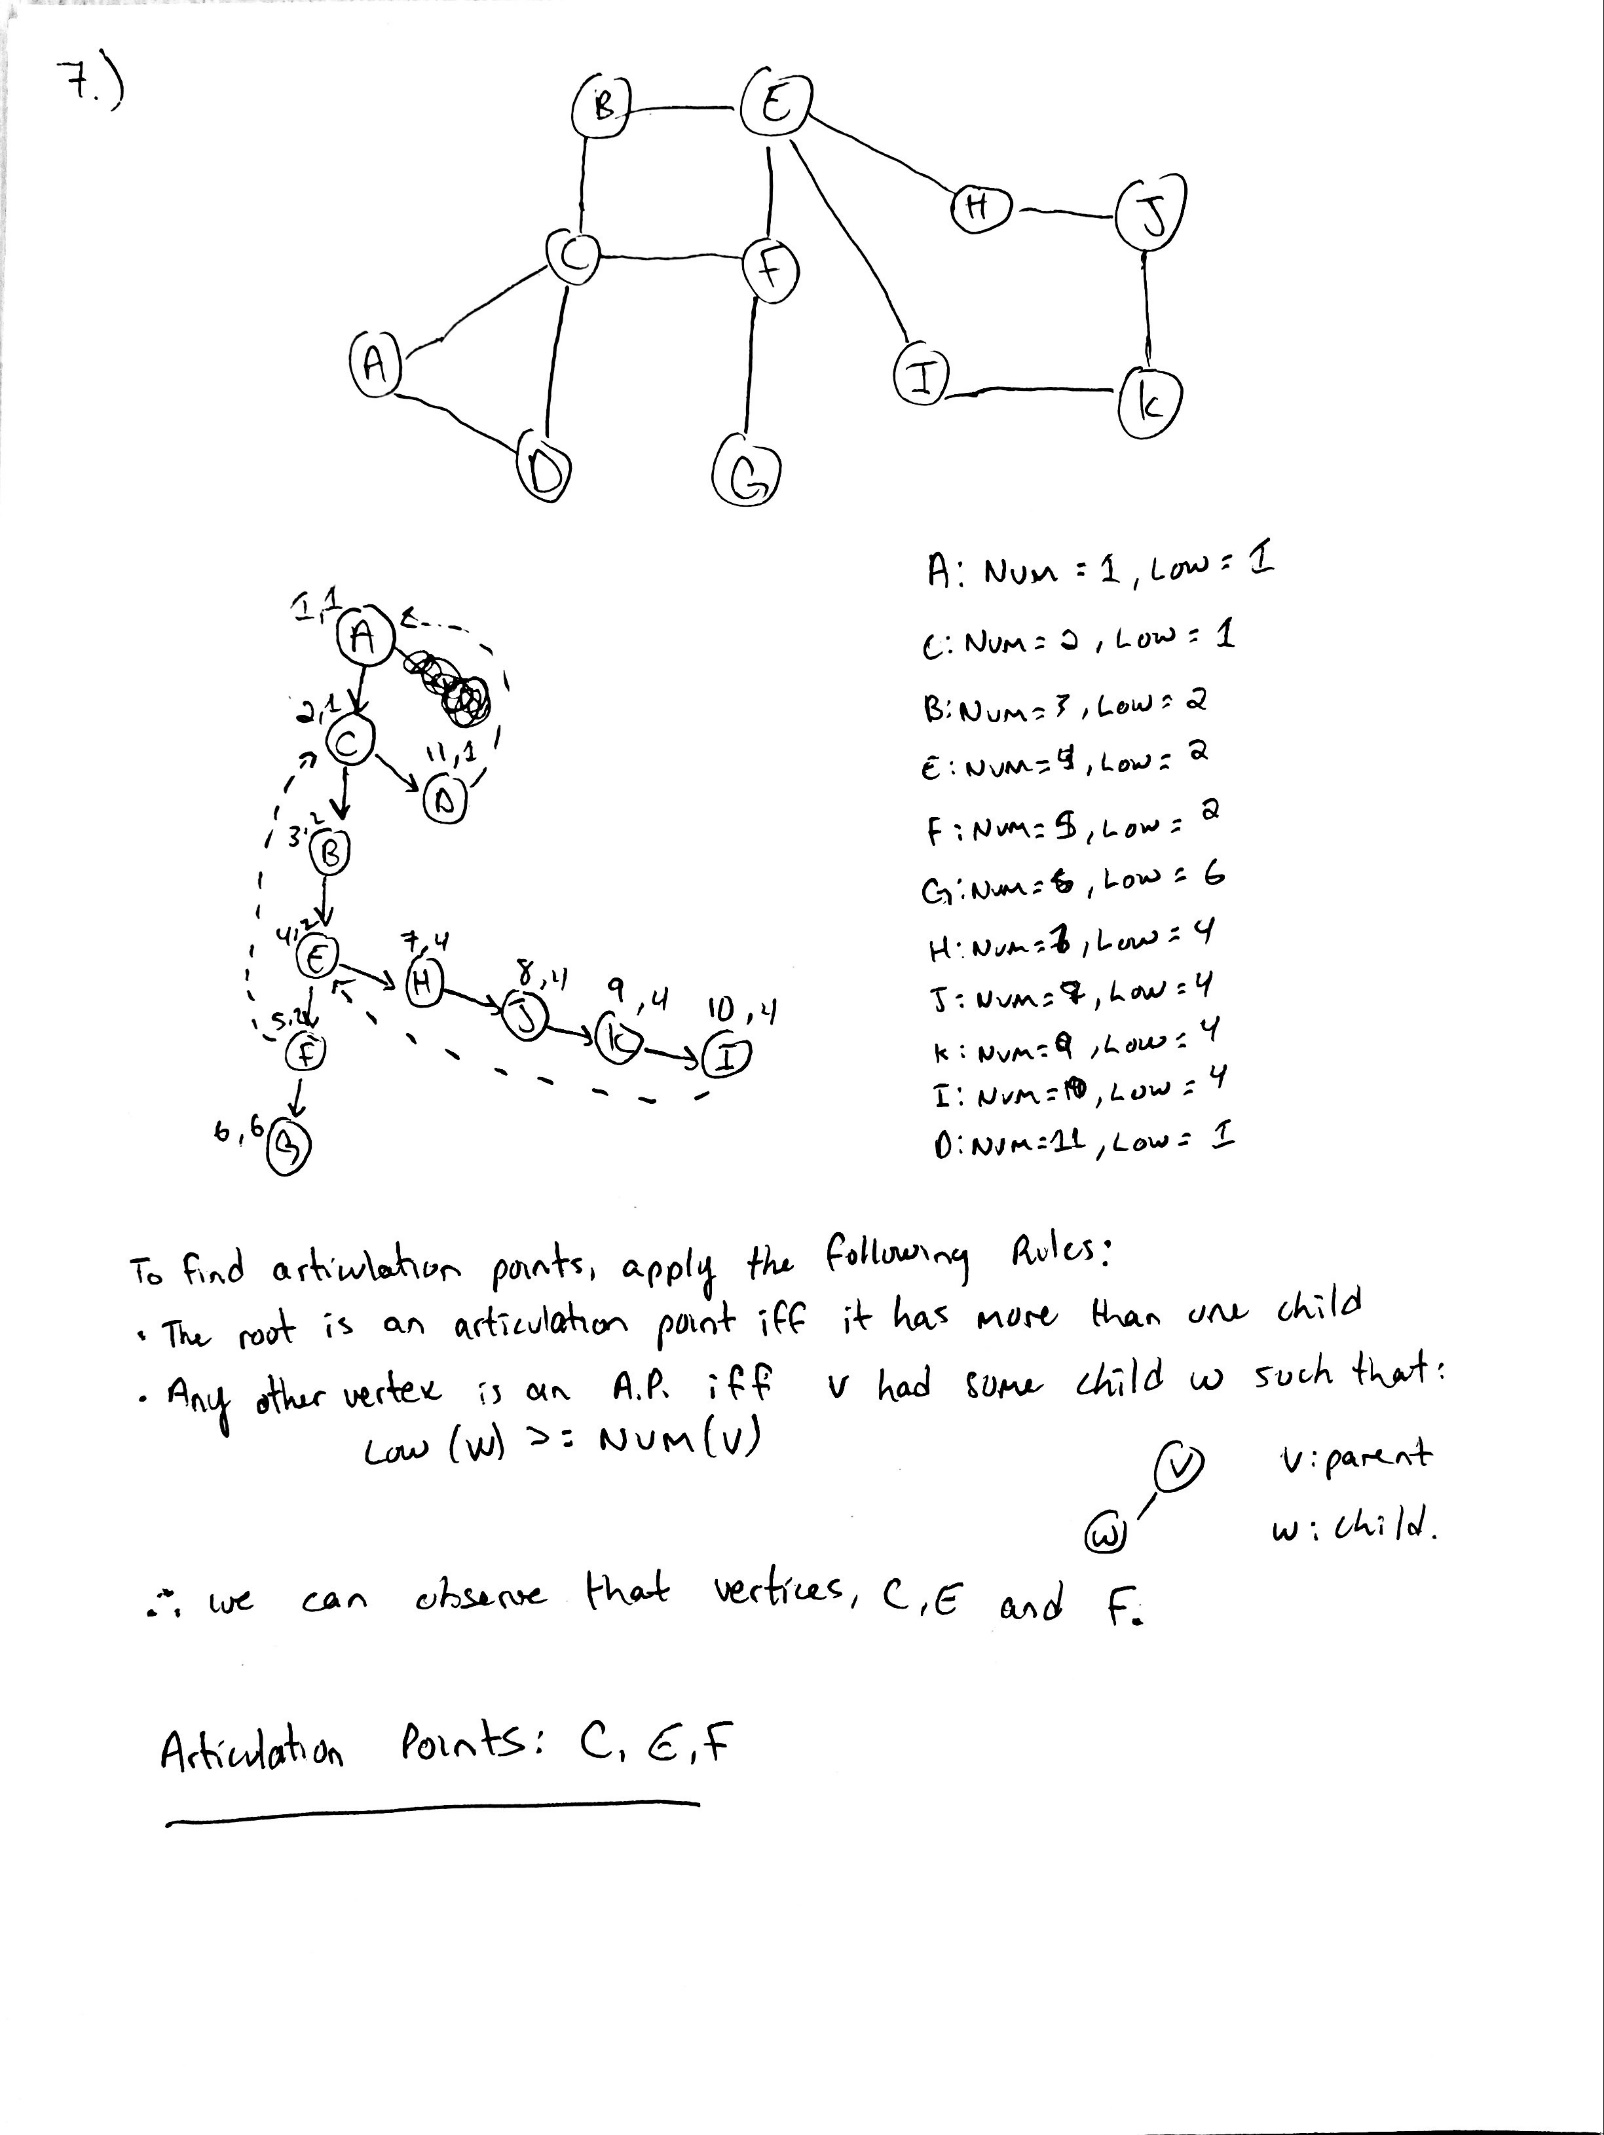 7.)
B E
H J
C F
A I K
D G
A: Num = 1, Low = 1
C: Num = 2, Low = 1
B: Num = 3, Low = 2
E: Num = 4, Low = 2
F: Num = 5, Low = 2
G: Num = 6, Low = 6
H: Num = 7, Low = 4
J: Num = , Low = 4
K: Num = 9, Low = 4
I: Num = 10, Low = 4
D: Num = 11, Low = 1
1,1
A
2,1
C
11,1
D
3,2
B
4,2
E
7,4
H
8,4
J
9,4
K
10,4
I
5,2
F
6,6
G
To find articulation points, apply the following Rules:
• The root is an articulation point iff it has more than one child
• Any other vertex is an A.P. iff v had some child w such that:
Low (w) >= Num(v)
v v: parent
w w: child.
∴ we can observe that vertices, C, E and F.
Articulation Points: C, E, F